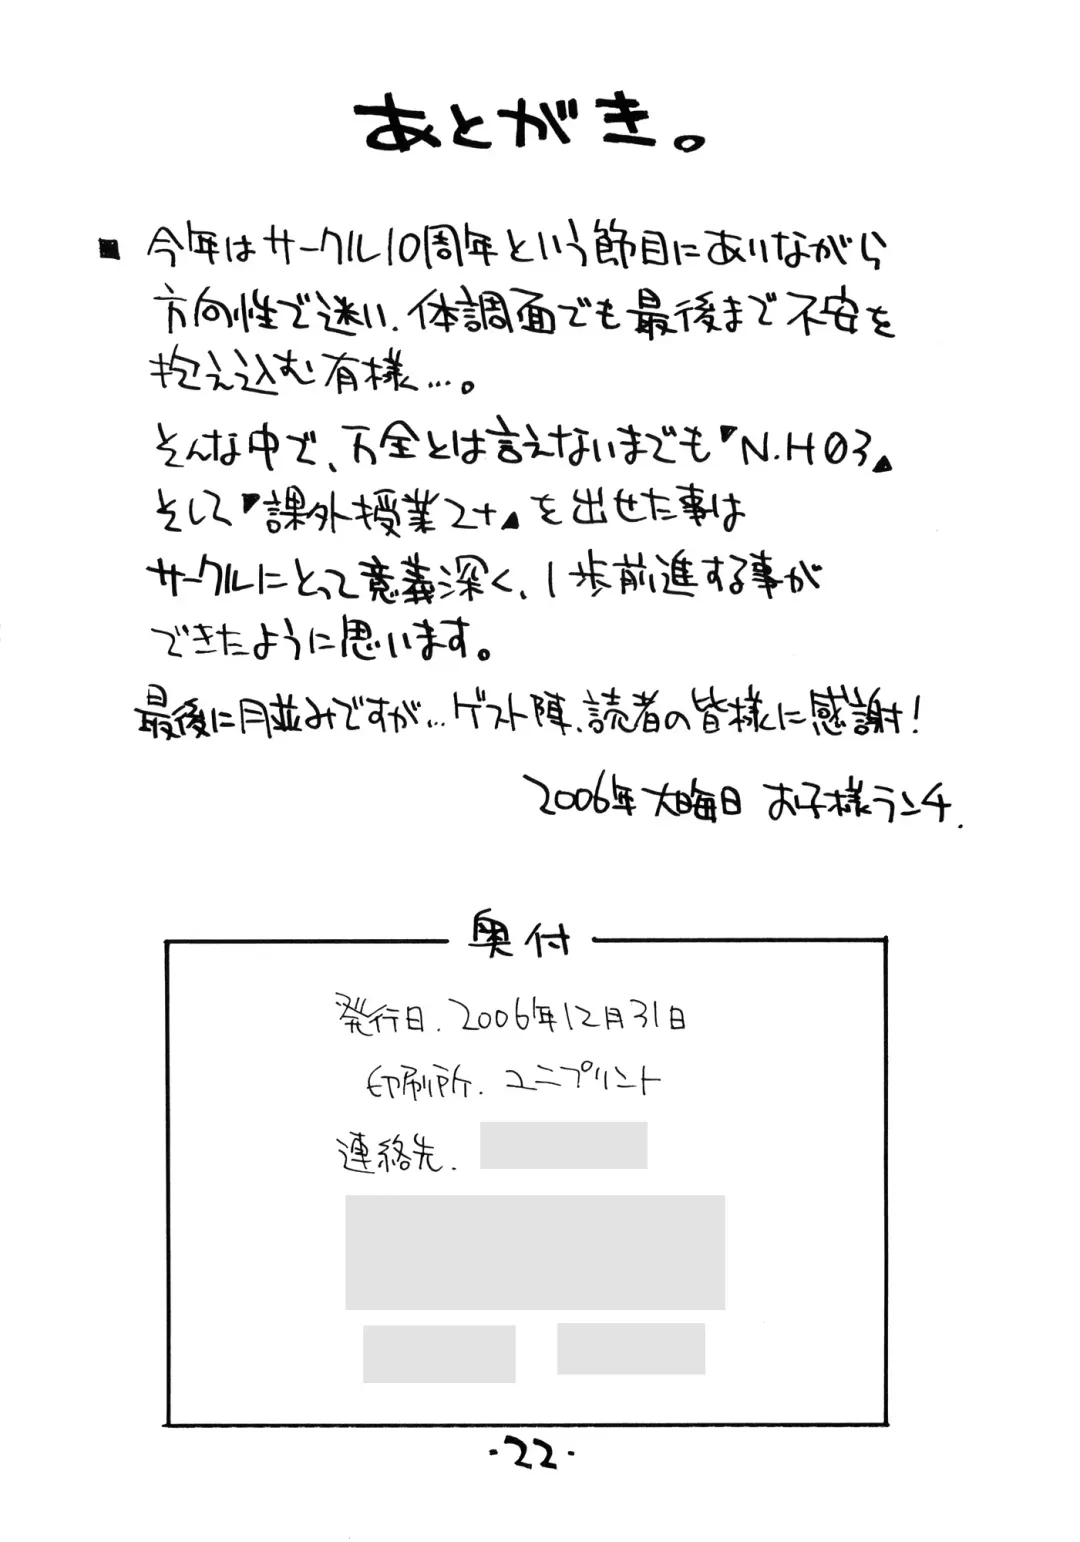 あとがき。
■ 今年はサークル10周年という節目にありながら
方向性で迷い、体調面でも最後まで不安を
抱え込む有様…。
そんな中で、万全とは言えないまでも『N.H03』
そして『課外授業2+』を出せた事は
サークルにとって意義深く、1歩前進する事が
できたように思います。
最後に月並みですが…ゲスト陣、読者の皆様に感謝!
2006年大晦日 お子様ランチ.
奥付
発行日. 2006年12月31日
印刷所. ユニプリント
連絡先.
・22・